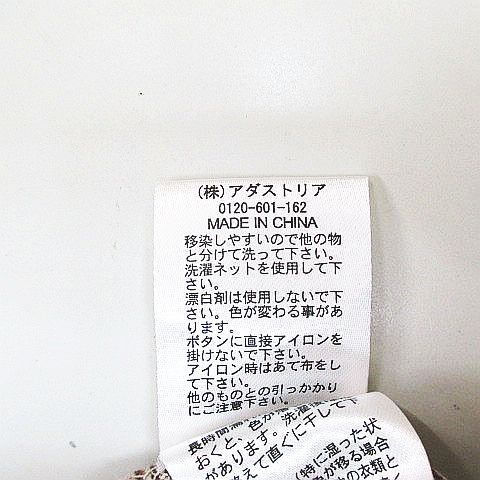 (株)アダストリア
0120-601-162
MADE IN CHINA
移染しやすいので他の物
と分けて洗って下さい。
洗濯ネットを使用して下
さい。
漂白剤は使用しないで下
さい。色が変わる事があ
ります。
ボタンに直接アイロンを
掛けないで下さい。
アイロン時はあて布をし
て下さい。
他のものとの引っかかり
にご注意下さい。
長時間
おくと、色が
があります。洗濯
えて直ぐに干して下
(特に湿った状
が移る場合
の衣類と